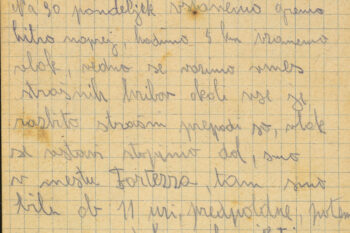 Na 30 pondeljek vstanemo gremo
hitro naprej, hodimo 5 km vzamemo
vlak, vedno se vozimo vmes
strasnih hribov okoli vse je
razbito strašni prepadi so, vlak
se ustavi stopimo dol, smo
v mestu Fortezza, tam smo
bili ob 11 uri, predpoldne, potem